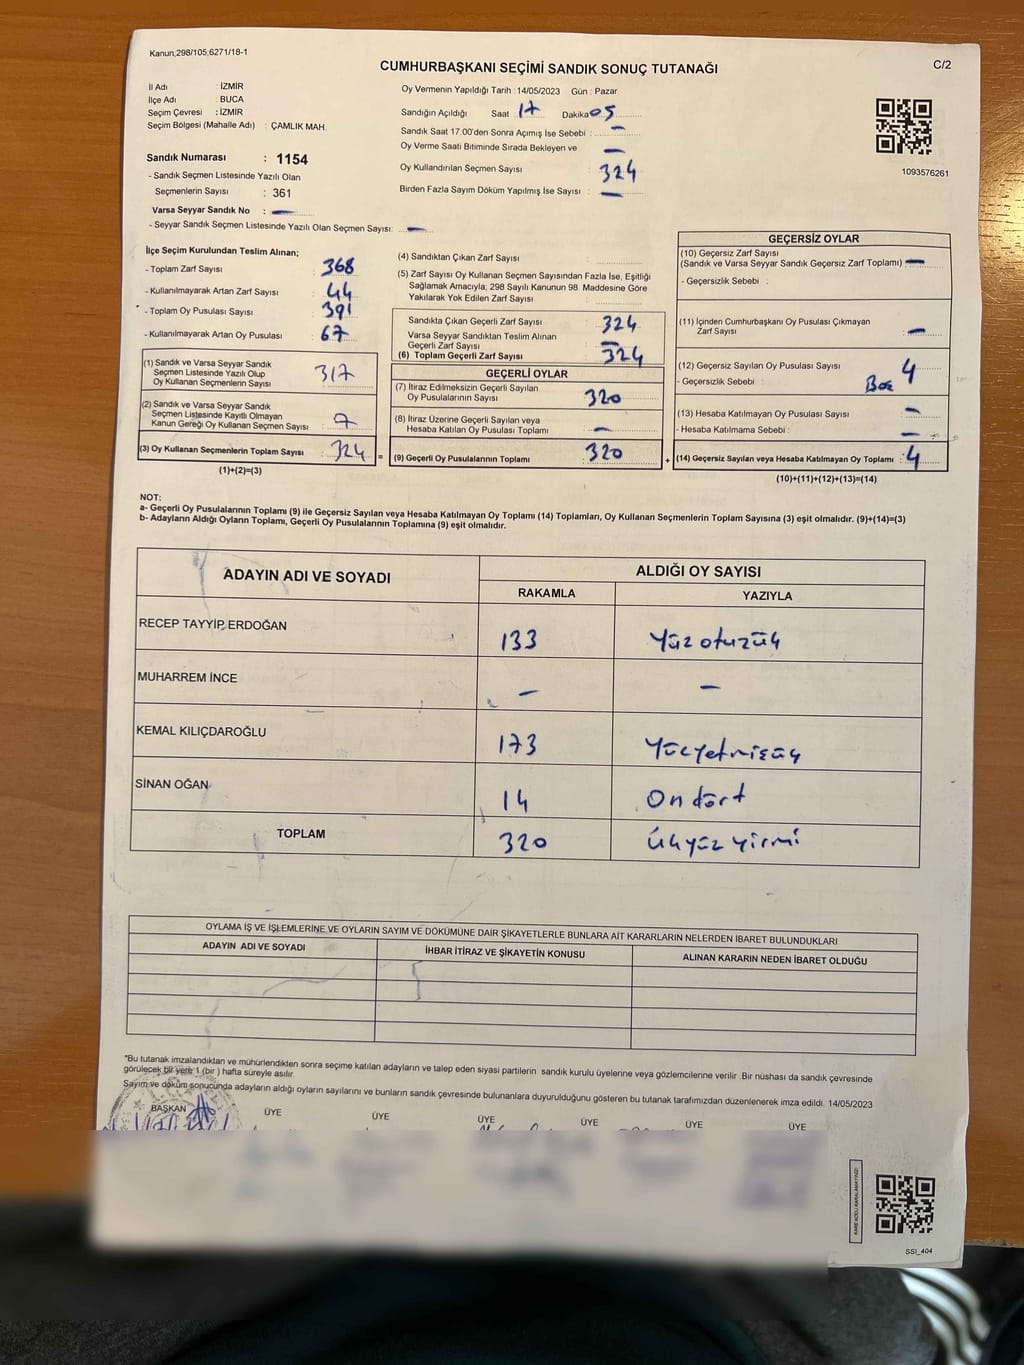 Kanun;298/105;6271/18-1
C/2
CUMHURBAŞKANI SEÇİMİ SANDIK SONUÇ TUTANAĞI
İl Adı : İZMİR
İlçe Adı : BUCA
Seçim Çevresi : İZMİR
Seçim Bölgesi (Mahalle Adı) : ÇAMLIK MAH.
Oy Vermenin Yapıldığı Tarih : 14/05/2023 Gün : Pazar
Sandığın Açıldığı Saat 17 Dakika 05
Sandık Saat 17:00'den Sonra Açımış İse Sebebi : —
Oy Verme Saati Bitiminde Sırada Bekleyen ve —
Oy Kullandırılan Seçmen Sayısı 324
Birden Fazla Sayım Döküm Yapılmış İse Sayısı : —
1093576261
Sandık Numarası : 1154
- Sandık Seçmen Listesinde Yazılı Olan
Seçmenlerin Sayısı : 361
Varsa Seyyar Sandık No : —
- Seyyar Sandık Seçmen Listesinde Yazılı Olan Seçmen Sayısı: —
İlçe Seçim Kurulundan Teslim Alınan;
- Toplam Zarf Sayısı 368
- Kullanılmayarak Artan Zarf Sayısı 44
- Toplam Oy Pusulası Sayısı 391
- Kullanılmayarak Artan Oy Pusulası 67
(1) Sandık ve Varsa Seyyar Sandık
Seçmen Listesinde Yazılı Olup
Oy Kullanan Seçmenlerin Sayısı 317
(2) Sandık ve Varsa Seyyar Sandık
Seçmen Listesinde Kayıtlı Olmayan
Kanun Gereği Oy Kullanan Seçmen Sayısı 7
(3) Oy Kullanan Seçmenlerin Toplam Sayısı : 324 =
(1)+(2)=(3)
(4) Sandıktan Çıkan Zarf Sayısı :
(5) Zarf Sayısı Oy Kullanan Seçmen Sayısından Fazla İse, Eşitliği
Sağlamak Amacıyla; 298 Sayılı Kanunun 98. Maddesine Göre
Yakılarak Yok Edilen Zarf Sayısı :
Sandıkta Çıkan Geçerli Zarf Sayısı 324
Varsa Seyyar Sandıktan Teslim Alınan
Geçerli Zarf Sayısı —
(6) Toplam Geçerli Zarf Sayısı 324
GEÇERLİ OYLAR
(7) İtiraz Edilmeksizin Geçerli Sayılan
Oy Pusulalarının Sayısı 320
(8) İtiraz Üzerine Geçerli Sayılan veya
Hesaba Katılan Oy Pusulası Toplamı —
(9) Geçerli Oy Pusulalarının Toplamı 320 +
GEÇERSİZ OYLAR
(10) Geçersiz Zarf Sayısı
(Sandık ve Varsa Seyyar Sandık Geçersiz Zarf Toplamı) —
- Geçersizlik Sebebi :
(11) İçinden Cumhurbaşkanı Oy Pusulası Çıkmayan
Zarf Sayısı —
(12) Geçersiz Sayılan Oy Pusulası Sayısı 4
- Geçersizlik Sebebi : Boş
(13) Hesaba Katılmayan Oy Pusulası Sayısı —
- Hesaba Katılmama Sebebi : —
(14) Geçersiz Sayılan veya Hesaba Katılmayan Oy Toplamı : 4
(10)+(11)+(12)+(13)=(14)
NOT:
a- Geçerli Oy Pusulalarının Toplamı (9) ile Geçersiz Sayılan veya Hesaba Katılmayan Oy Toplamı (14) Toplamları, Oy Kullanan Seçmenlerin Toplam Sayısına (3) eşit olmalıdır. (9)+(14)=(3)
b- Adayların Aldığı Oyların Toplamı, Geçerli Oy Pusulalarının Toplamına (9) eşit olmalıdır.
ADAYIN ADI VE SOYADI
ALDIĞI OY SAYISI
RAKAMLA YAZIYLA
RECEP TAYYİP ERDOĞAN 133 Yüzotuzüç
MUHARREM İNCE — —
KEMAL KILIÇDAROĞLU 173 Yüzyetmişüç
SİNAN OĞAN 14 On dört
TOPLAM 320 Üçyüz yirmi
OYLAMA İŞ VE İŞLEMLERİNE VE OYLARIN SAYIM VE DÖKÜMÜNE DAİR ŞİKAYETLERLE BUNLARA AİT KARARLARIN NELERDEN İBARET BULUNDUKLARI
ADAYIN ADI VE SOYADI İHBAR İTİRAZ VE ŞİKAYETİN KONUSU ALINAN KARARIN NEDEN İBARET OLDUĞU
*Bu tutanak imzalandıktan ve mühürlendikten sonra seçime katılan adayların ve talep eden siyasi partilerin sandık kurulu üyelerine veya gözlemcilerine verilir .Bir nüshası da sandık çevresinde
görülecek bir yere 1 (bir ) hafta süreyle asılır.
Sayım ve döküm sonucunda adayların aldığı oyların sayılarını ve bunların sandık çevresinde bulunanlara duyurulduğunu gösteren bu tutanak tarafımızdan düzenlenerek imza edildi. 14/05/2023
BAŞKAN ÜYE ÜYE ÜYE ÜYE ÜYE ÜYE
SSI_404